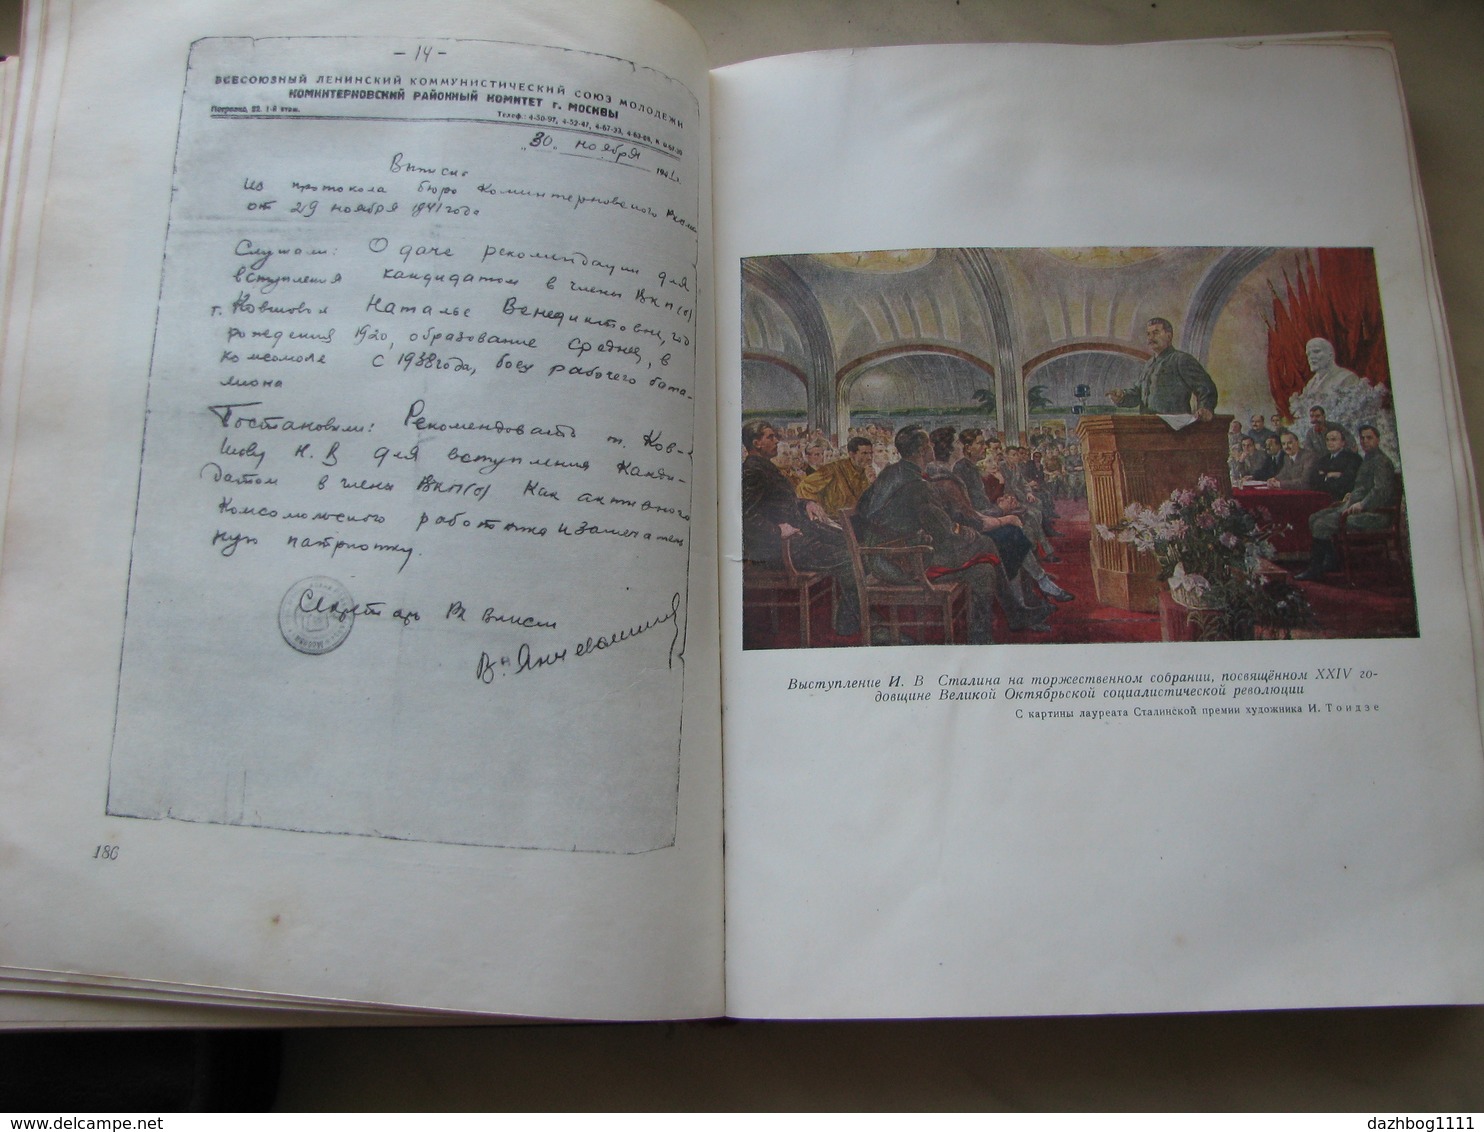 - 14 -
ВСЕСОЮЗНЫЙ ЛЕНИНСКИЙ КОММУНИСТИЧЕСКИЙ СОЮЗ МОЛОДЕЖИ
КОМИНТЕРНОВСКИЙ РАЙОННЫЙ КОМИТЕТ г. МОСКВЫ
Петровка, 22, 1-й этаж.
Телеф.: 4-50-97, 4-52-47, 4-67-33, 4-63-08, и
„30„ ноября 1941 г.
Выписка
из протокола бюро Коминтерновского
от 29 ноября 1941 года
Слушали: О даче рекомендации для
вступления кандидатом в члены ВКП(б)
т. Ковшовой Наталье Венедиктовне, год
рождения 1920, образование среднее, в
комсомоле с 1938 года, боец рабочего бата-
лиона
Постановили: Рекомендовать т. Ков-
шову Н. В для вступления канди-
датом в члены ВКП(б) как активного
комсомольского работника и замечатель
ную патриотку.
Секретарь РК ВЛКСМ
186
Выступление И. В Сталина на торжественном собрании, посвящённом XXIV го-
довщине Великой Октябрьской социалистической революции
С картины лауреата Сталинской премии художника И. Тоидзе
delcampe.net
dazhbog1111